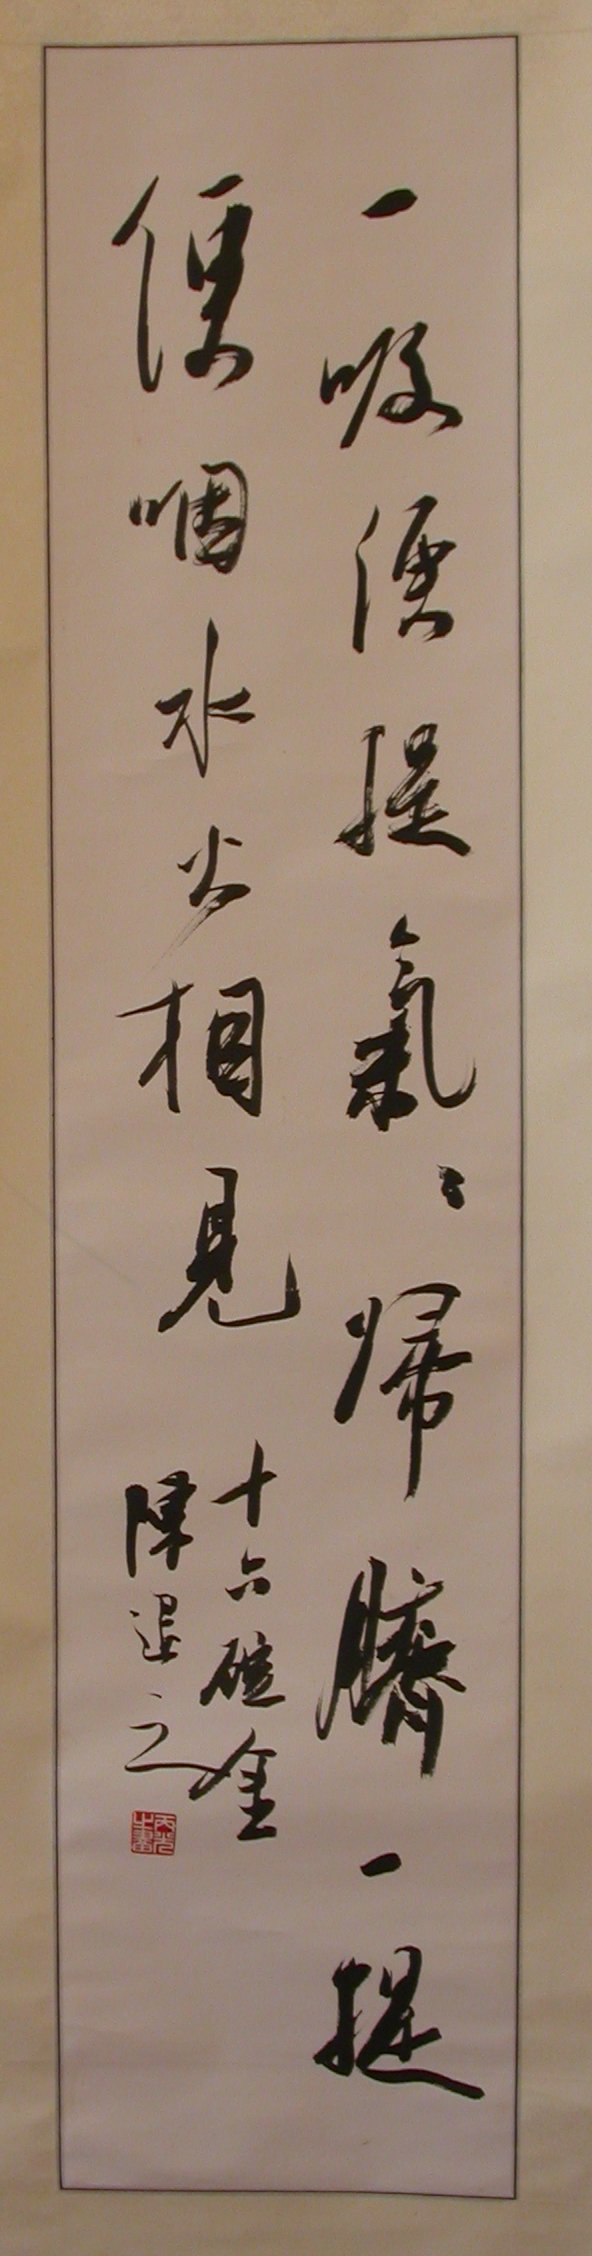 一吸便提氣〻歸臍一提
便咽水火相見
十六碇金
陳退之